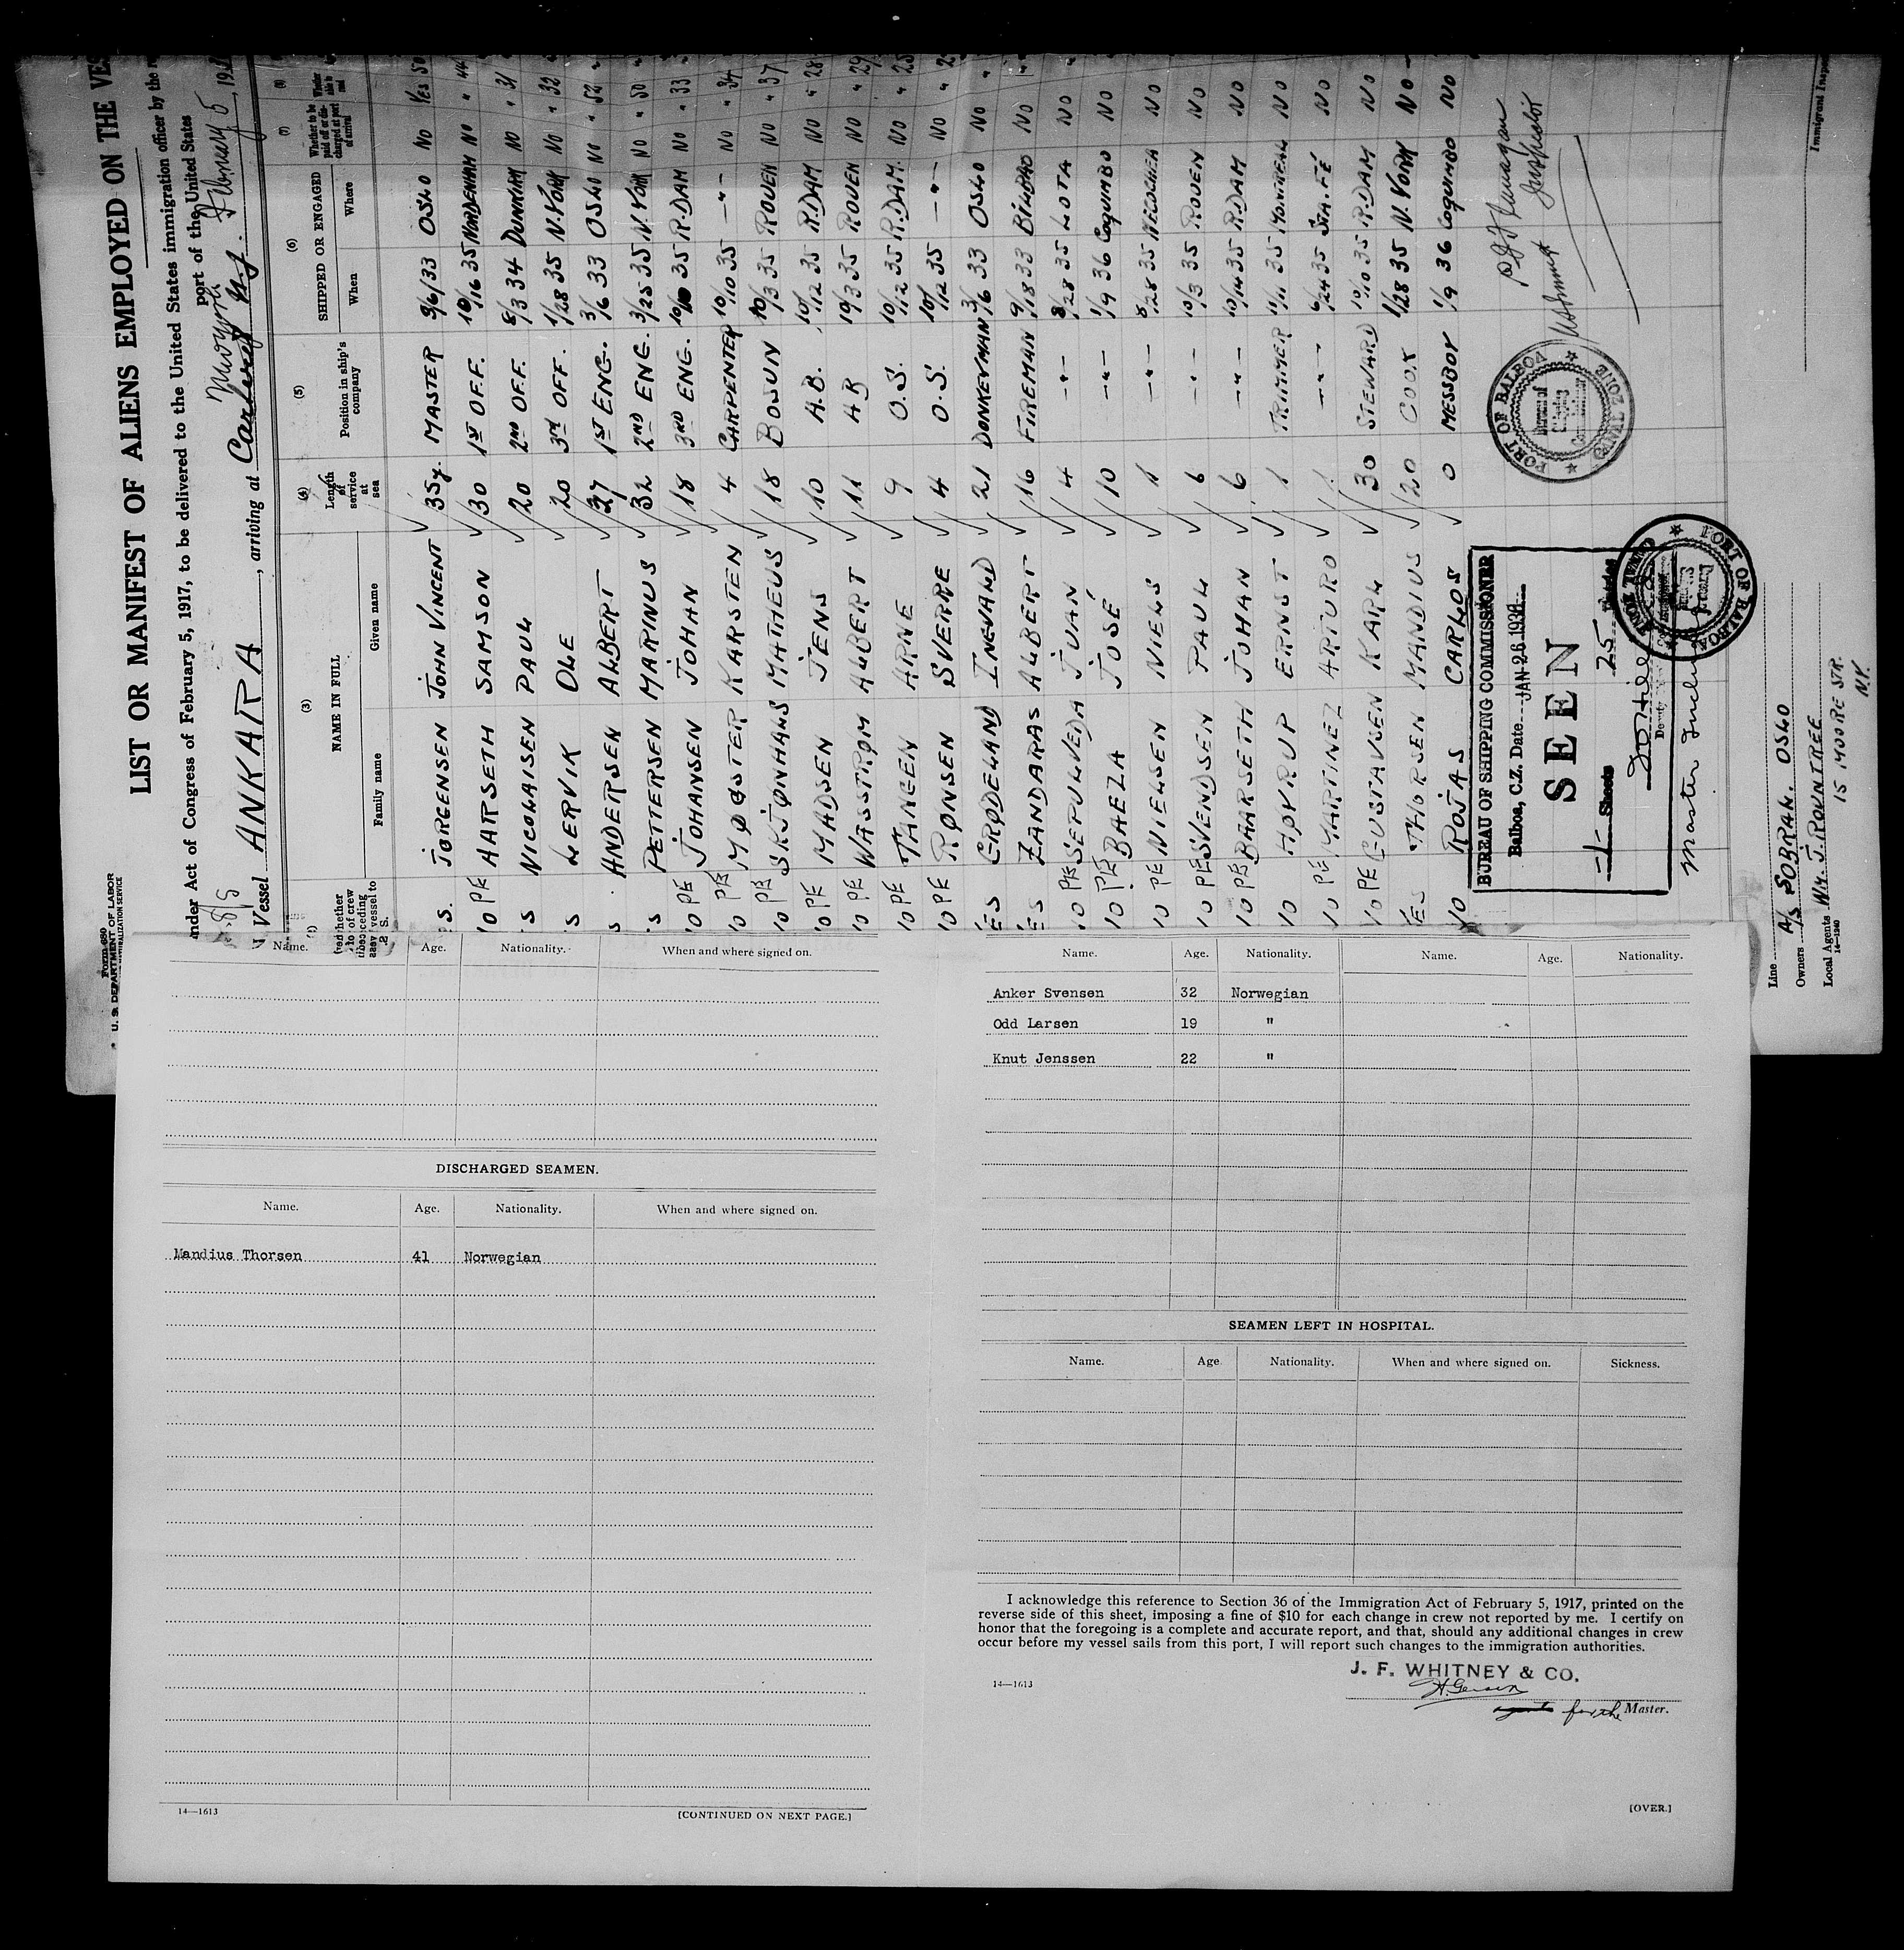 LIST OR MANIFEST OF ALIENS EMPLOYED ON THE VES
nder Act of Congress of February 5, 1917, to be delivered to the United States immigration officer by the
port of the United States
Vessel ANKARA, arriving at Carteret N.J. February 5, 193
Form 680
U. S. DEPARTMENT OF LABOR
(3) (4) (5) (6) (7) (8)
NAME IN FULL
Family name Given name
Length of service at sea
Position in ship's company
SHIPPED OR ENGAGED
When Where
Whether to be paid off or discharged at port of arrival
S. JORGENSEN JOHN VINCENT 35y. MASTER 3/6/33 OSLO NO YES 50
10 PE AARSETH SAMSON 30 1ST OFF. 10/16 35 NORDENHAM NO " 44
S NICOLAISEN PAUL 20 2ND OFF. 8/3 34 DUNKIRK NO " 31
S LERVIK OLE 20 3RD OFF. 1/28 35 N.YORK NO " 32
S. ANDERSEN ALBERT 27 1ST ENG. 3/6 33 OSLO NO " 52
S PETTERSEN MARINUS 32 2ND ENG. 3/25 35 N.YORK NO " 50
10 PE JOHANSEN JOHAN 18 3RD ENG. 10/10 35 R.DAM NO " 33
10 PE MØSTER KARSTEN 4 CARPENTER 10/10 35 -"- NO " 34
10 PE SKJØNHALS MATHEUS 18 BOSUN 10/3 35 ROUEN NO " 37
10 PE MADSEN JENS 10 A.B. 10/12 35 R.DAM NO " 28
10 PE WASSTRØM ALBERT 11 AB 10/3 35 ROUEN NO " 29
10 PE TANGEN ARNE 9 O.S. 10/12 35 R.DAM. NO " 25
10 PE RØNSEN SVERRE 4 O.S. 10/12 35 -"- NO " 2
YES GRØDELAND INGVALD 21 DONKEYMAN 3/6 33 OSLO NO "
YES ZANDARAS ALBERT 16 FIREMAN 9/18 33 BILBAO NO "
10 PE SEPULVEDA JUAN 4 -"- 8/28 35 LOTA NO "
10 PE BAEZA JOSÉ 10 -"- 1/9 36 COQUIMBO NO
10 PE NIELSEN NIELS 1 -"- 8/28 35 NECOCHEA NO
10 PE SVENDSEN PAUL 6 -"- 10/3 35 ROUEN NO
10 PE BAARSETH JOHAN 6 -"- 10/14 35 R.DAM NO
10 HØVRUP ERNST 1 TRIMMER 11/11 35 MONTREAL NO
10 PE MARTINEZ ARTURO 1 -"- 6/24 35 STA. FÉ NO
10 PE GUSTAVSEN KARL 30 STEWARD 10/10 35 R.DAM NO
YES THORSEN MANDIUS 20 COOK 1/28 35 N.YORK NO
10 ROJAS CARLOS 0 MESSBOY 1/9 36 COQUIMBO NO
BUREAU OF SHIPPING COMMISSIONER
Balboa, C.Z. Date JAN 26 1936
SEEN
1 Sheets 25
Deputy
Master
PORT OF BALBOA
CANAL ZONE
PORT OF BALBOA
CANAL ZONE
Inspector
Immigrant Inspe
Line
Owners A/S SOBRAL. OSLO
Local Agents WM. J. ROUNTREE
15 MOORE STR.
N.Y.
14—1240
Name. Age. Nationality. When and where signed on.
DISCHARGED SEAMEN.
Name. Age. Nationality. When and where signed on.
Mandius Thorsen 41 Norwegian
14—1613
[CONTINUED ON NEXT PAGE.]
Name. Age. Nationality. Name. Age. Nationality.
Anker Svensen 32 Norwegian
Odd Larsen 19 "
Knut Jenssen 22 "
SEAMEN LEFT IN HOSPITAL.
Name. Age Nationality. When and where signed on. Sickness.
I acknowledge this reference to Section 36 of the Immigration Act of February 5, 1917, printed on the
reverse side of this sheet, imposing a fine of $10 for each change in crew not reported by me. I certify on
honor that the foregoing is a complete and accurate report, and that, should any additional changes in crew
occur before my vessel sails from this port, I will report such changes to the immigration authorities.
J. F. WHITNEY & CO.
14—1613
for the Master.
[OVER.]